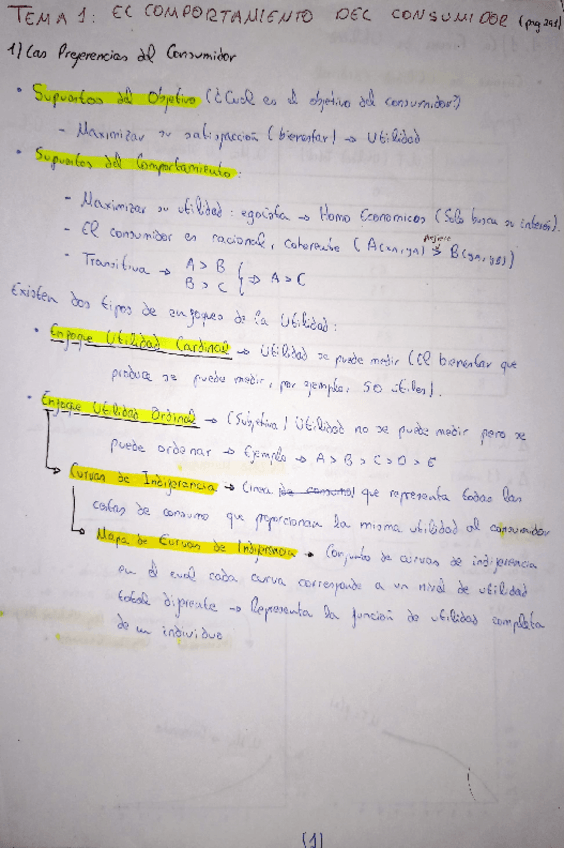 TEMA 1: EL COMPORTAMIENTO DEL CONSUMIDOR (pag 241)
1) Las Preferencias del Consumidor
• Supuestos del Objetivo (¿Cual es el objetivo del consumidor?)
- Maximizar su satisfacción (bienestar) → Utilidad
• Supuestos del Comportamiento:
- Maximizar su utilidad: egoista → Homo Economicos (Solo busca su interés).
- El consumidor es racional, coherente (A(xn,yn) > B(yn,yB))
- Transitiva → A > B
B > C } ⇒ A > C
Existen dos tipos de enfoques de la Utilidad:
• Enfoque Utilidad Cardinal → Utilidad se puede medir (El bienestar que
produce se puede medir, por ejemplo, 50 útiles).
• Enfoque Utilidad Ordinal → (Subjetiva) Utilidad no se puede medir pero se
puede ordenar → Ejemplo → A > B > C > D > E
→ Curvas de Indiferencia → Linea que representa todas las
cestas de consumo que proporcionan la misma utilidad al consumidor
→ Mapa de Curvas de Indiferencia → Conjunto de curvas de indiferencia
en el cual cada curva corresponde a un nivel de utilidad
total diferente → Representa la función de utilidad completa
de un individuo
(1)